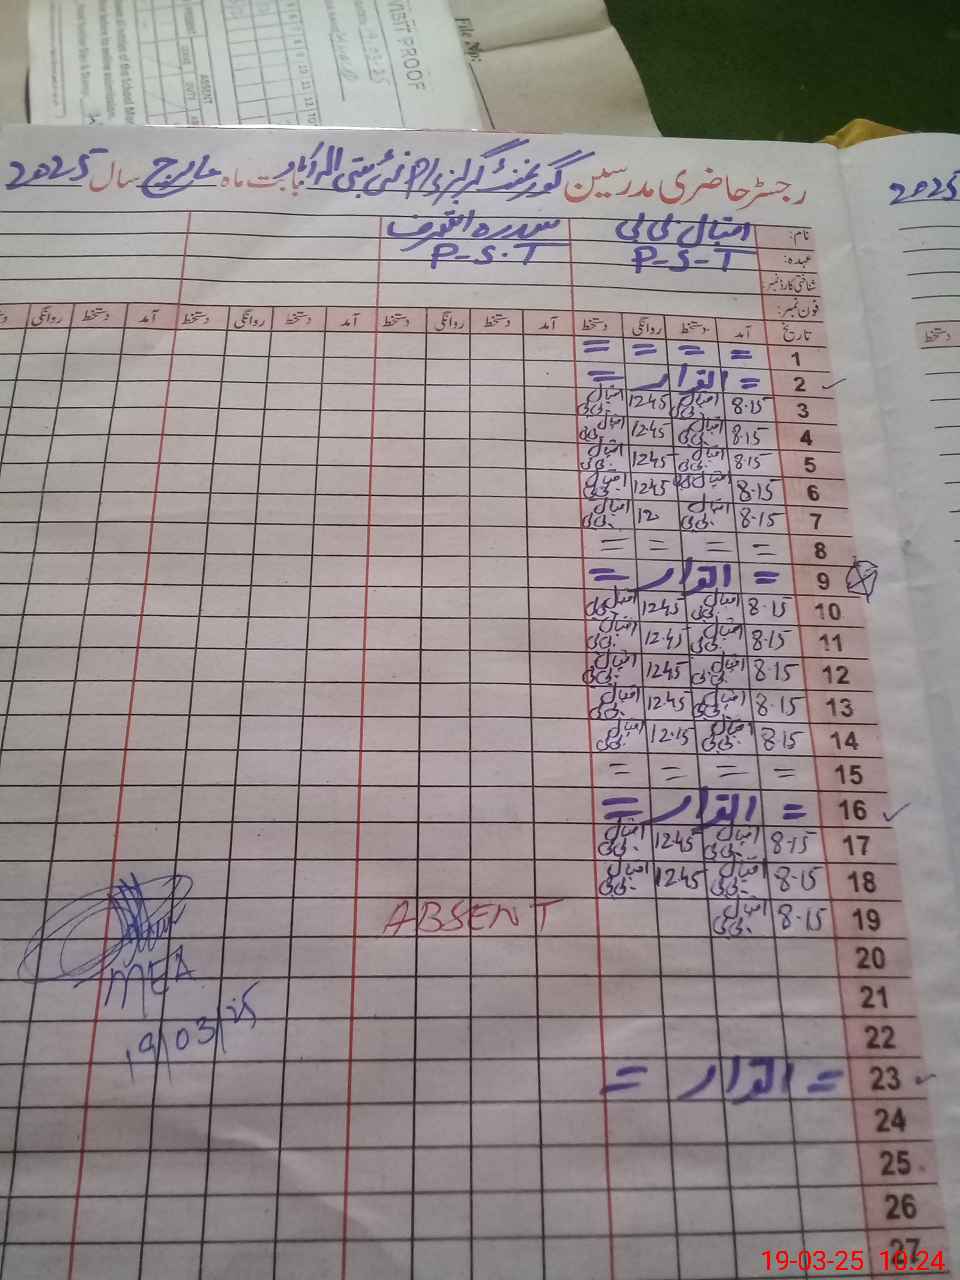 File No:
VISIT PROOF
ABSENT
رجسٹر حاضری مدرسین گورنمنٹ گرلز بابت ماہ مارچ سال 2025
2025
نام: اقبال بی بی سدرہ اشرف
عہدہ: P-S-T P-S-T
شناختی کارڈ نمبر:
فون نمبر:
تاریخ آمد دستخط روانگی دستخط آمد دستخط روانگی دستخط آمد دستخط روانگی دستخط آمد دستخط روانگی
دستخط
1 = = = =
2 = اتوار =
3 8.15 اقبال بی بی 12.45 اقبال بی بی
4 8.15 اقبال بی بی 12.45 اقبال بی بی
5 8.15 اقبال بی بی 12.45 اقبال بی بی
6 8.15 اقبال بی بی 12.45 اقبال بی بی
7 8.15 اقبال بی بی 12 اقبال بی بی
8 = = = =
9 = اتوار =
10 8.15 اقبال بی بی 12.45 اقبال بی بی
11 8.15 اقبال بی بی 12.45 اقبال بی بی
12 8.15 اقبال بی بی 12.45 اقبال بی بی
13 8.15 اقبال بی بی 12.45 اقبال بی بی
14 8.15 اقبال بی بی 12.15 اقبال بی بی
15 = = = =
16 = اتوار =
17 8.15 اقبال بی بی 12.45 اقبال بی بی
18 8.15 اقبال بی بی 12.45 اقبال بی بی
19 8.15 اقبال بی بی ABSENT
20
MEA
21
19/03/25
22
23 = اتوار =
24
25
26
27
19-03-25 10:24